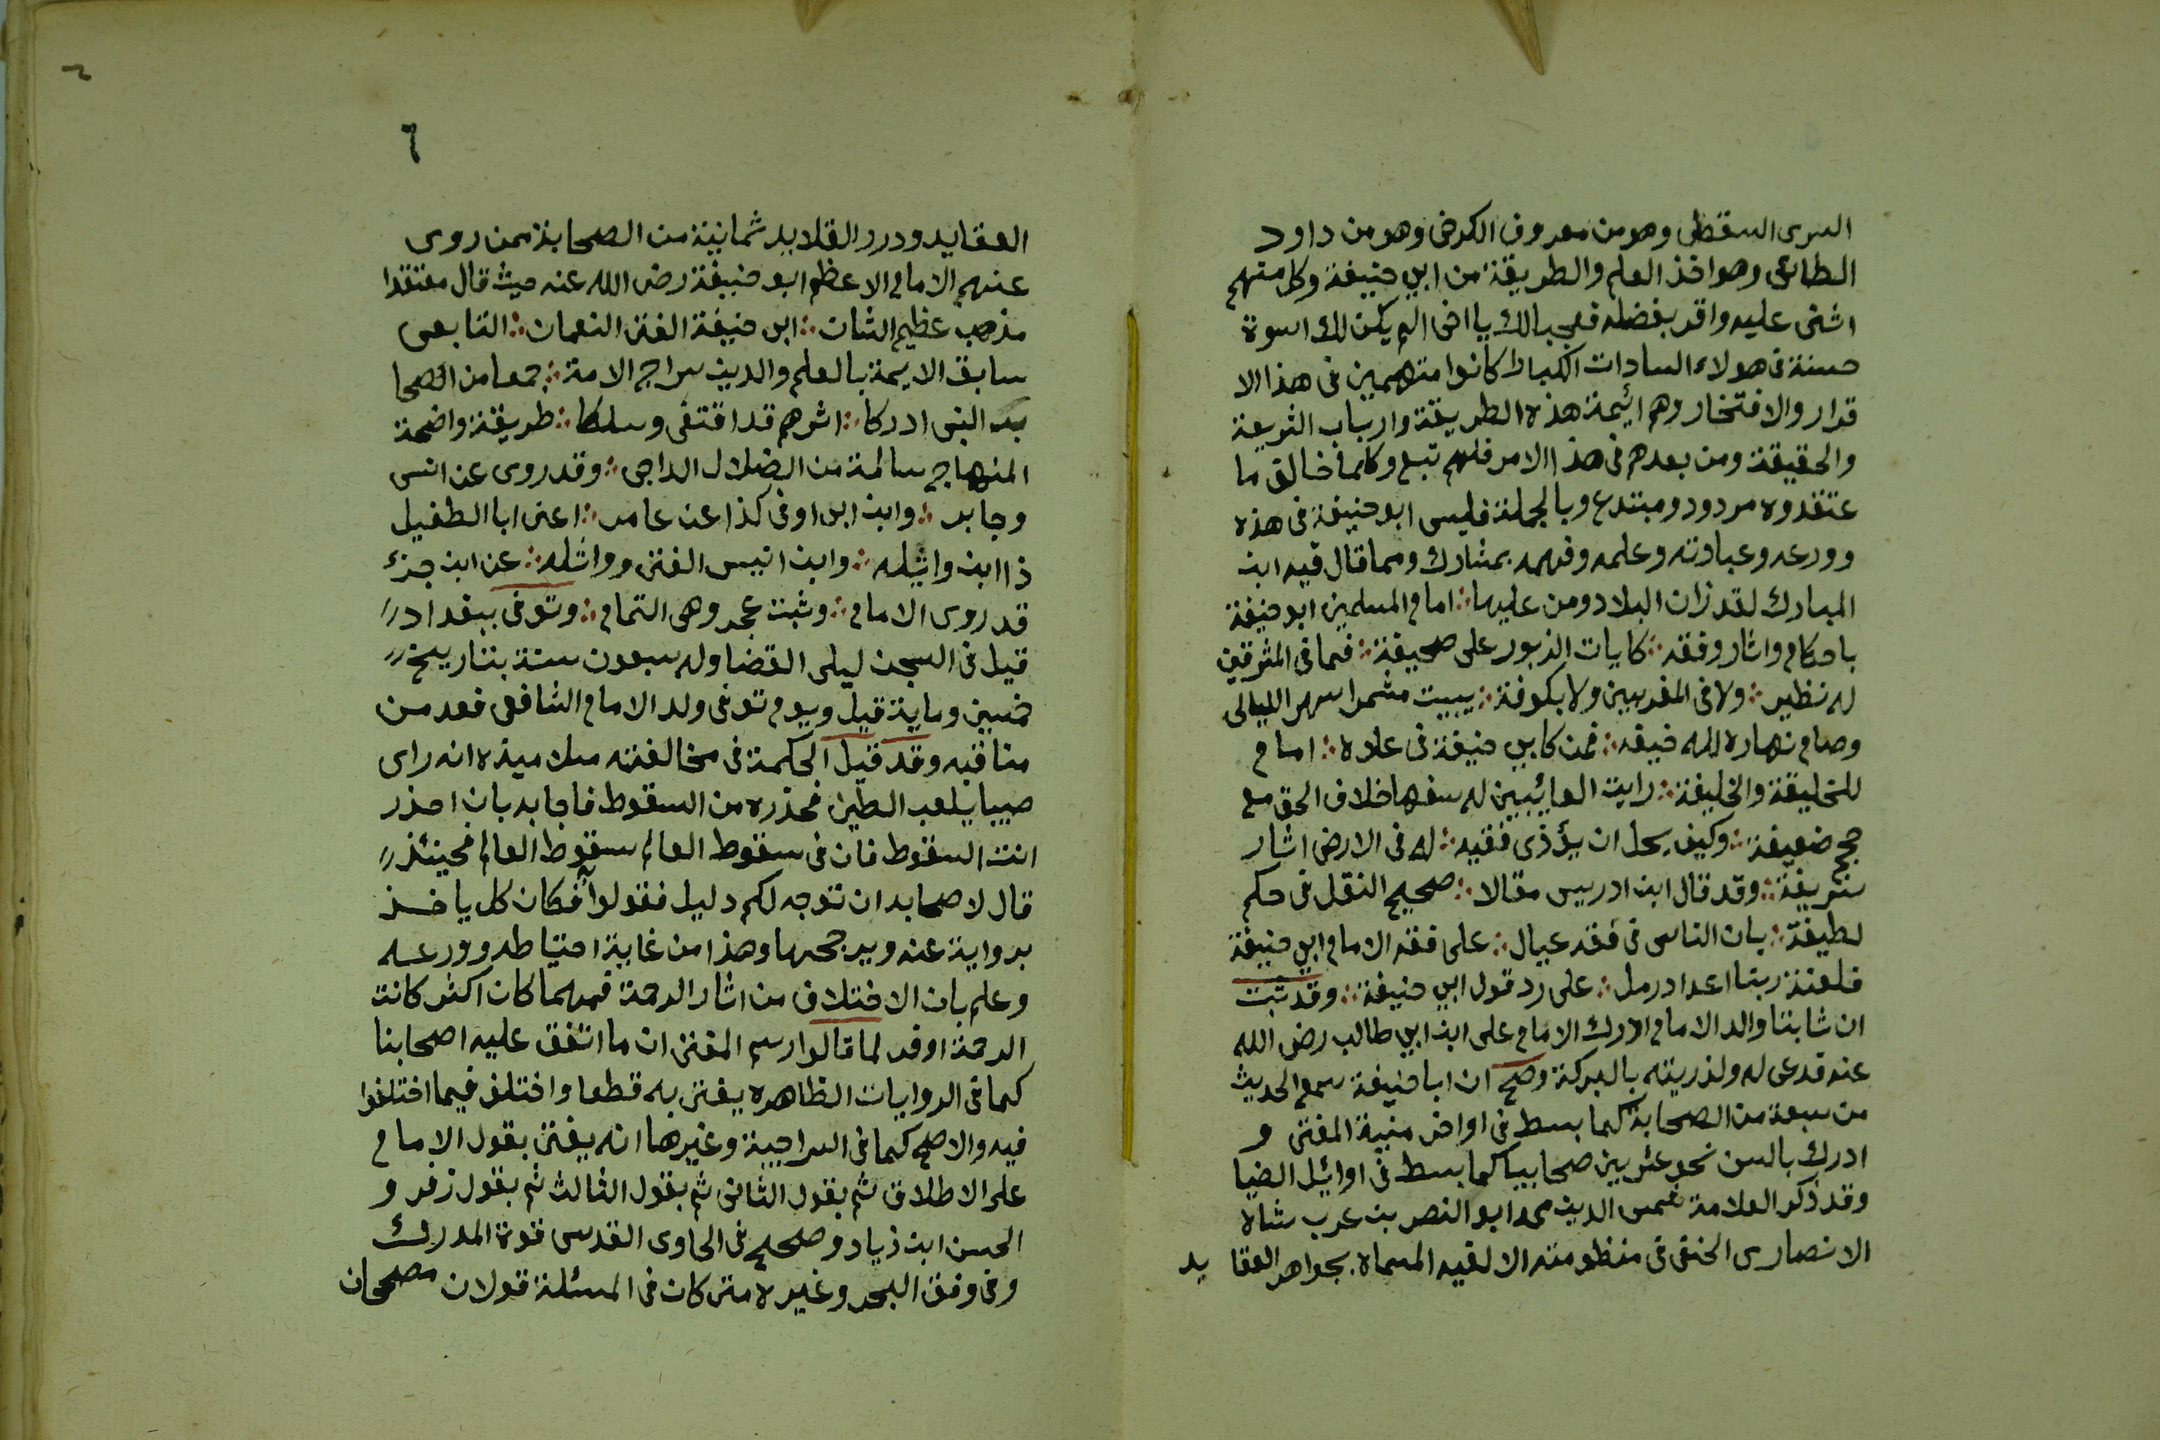 السرى السقطى وهو من معروف الكرخى وهو من داود
الطائى وهو اخذ العلم والطريقة من ابى حنيفة وكل منهم
اثنى عليه واقر بفضله فعجبا لك يا اخى الم يكن لك اسوة
حسنة فى هولاء السادات الكبار اكانوا متهمين فى هذا الا
قرار والافتخار وهم ائيمة هذه الطريقة وارباب الشريعة
والحقيقة ومن بعدهم فى هذا الامر فلهم تبع وكلما خالف ما
عتقدوه مردود ومبتدع وبالجملة فليس ابو حنيفة فى هذه
وورعه وعبادته وعلمه وفهمه بمشارك ومما قال فيه ابن
المبارك لقد زان البلاد ومن عليها ∴ امام المسلمين ابو حنيفة
باحكام واثار وفقه ∴ كايات الزبور على صحيفة ∴ فما فى المشرقين
له نظير ∴ ولا فى المغربين ولا بكوفة ∴ يبيت مشمرا سهر الليالى
وصام نهاره لله خيفه ∴ فمن كابى حنيفة فى علاه ∴ امام
للخليقة والخليفة ∴ رايت العائيبين له سفها خلاف الحق مع
حجج ضعيفة ∴ وكيف يحل ان يؤذى فقيه ∴ له فى الارض اثار
شريفة ∴ وقد قال ابن ادريس مقالا ∴ صحيح النقل فى حكم
لطيفة ∴ بان الناس فى فقه عيال ∴ على فقه الامام ابى حنيفة
فلعنة ربنا اعداد رمل ∴ على رد قول ابى حنيفة ∴ وقد ثبت
ان ثابتا والد الامام ادرك الامام على ابن ابى طالب رضى الله
عنه فدعى له ولذريته بالبركة وصح ان ابا حنيفة سمع الحديث
من سبعة من الصحابة كما بسط فى اواخر منية المفتى و
ادرك بالسن نحو عشرين صحابيا كما بسط فى اوائيل الضيا
وقد ذكر العلامة شمس الدين محمد ابو النصر بن عرب شاه
الانصارى الحنفى فى منظومته الالفيه المسماة بجواهر العقا يد
٦
العقايد ودرر القلايد ثمانية من الصحابة ممن روى
عنهم الامام الاعظم ابو حنيفة رضى الله عنه حيث قال معتقدا
مذهب عظيم الشان ∴ ابى حنيفة الفتى النعمان ∴ التابعى
سابق الايمة بالعلم والدين سراج الامة ∴ جمعا من الصحا
بة النبى ادركا ∴ اثرهم قد اقتفى وسلكا ∴ طريقة واضحة
المنهاج سالمة من الضلال الداجى ∴ وقد روى عن انس
وجابر ∴ وابن ابى اوفى كذا عن عامر ∴ اعنى ابا الطفيل
ذا ابن واثيله ∴ وابن انيس الفتى وواثله ∴ عن ابن جزء
قد روى الامام ∴ وثبت عجرد وهى التمام ∴ وتوفى ببغداد
قيل فى السجن ليلى القضا وله سبعون سنة بتاريخ
خمسين وماية قيل ويوم توفى ولد الامام الشافعى فعد من
مناقبه وقد قيل الحكمة فى مخالفته تلاميذه انه راى
صبيا يلعب الطين فحذره من السقوط فاجابه بان احذر
انت السقوط فان فى سقوط العالم سقوط العالم فحينئذ
قال لاصحابه ان توجه لكم دليل فقولوا به فكان كل ياخذ
برواية عنه ويرجحها وهذا من غاية احتياطه وورعه
وعلم بان الاختلاف من اثار الرحمة فمهما كان اكثر كانت
الرحمة اوفر لما قالوا رسم المفتى ان ما اتفق عليه اصحابنا
كما فى الروايات الظاهره يفتى به قطعا واختلف فيما اختلفوا
فيه والاصح كما فى السراجية وغيرها انه يفتى بقول الامام
على الاطلاق ثم بقول الثانى ثم بقول الثالث ثم بقول زفر و
الحسن ابن زياد وصحح فى الحاوى القدسى قوة المدرك
وفى وقف البحر وغيره متى كان فى المسئلة قولان مصححان